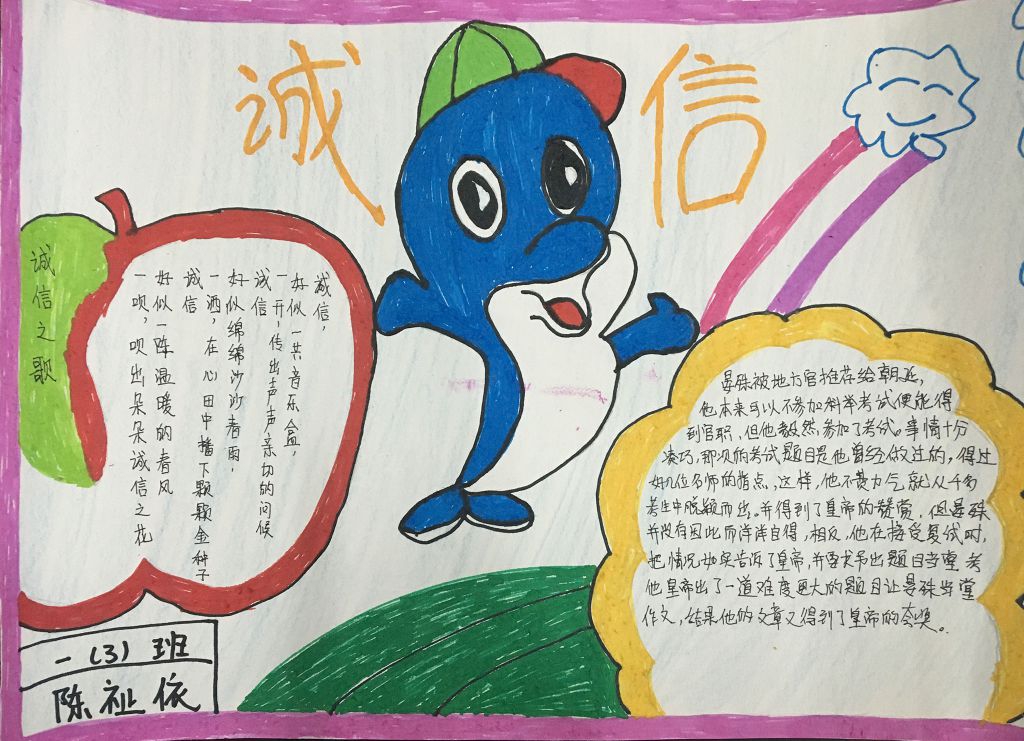 诚信
诚信之歌
诚信，
好似一共音乐盒，
一开，传出声声亲切的问候
诚信
好似绵绵沙沙春雨，
一洒，在心田中播下颗颗金种子
诚信
好似一阵温暖的春风
一呗，呗出朵朵诚信之花
晏殊被地方官推荐给朝廷，
他本来可以不参加科举考试便能得
到官职，但他毅然参加了考试。事情十分
凑巧，那次的考试题目是他曾经做过的，得过
好几位名师的指点，这样，他不费力气就从千多
考生中脱颖而出。并得到了皇帝的赞赏，但晏殊
并没有因此而洋洋自得，相反，他在接受复试时，
把情况如实告诉了皇帝，并要求另出题目当堂考
他皇帝出了一道难度更大的题目让晏殊当堂
作文，结果他的文章又得到了皇帝的夸奖。
一（3）班
陈祉依